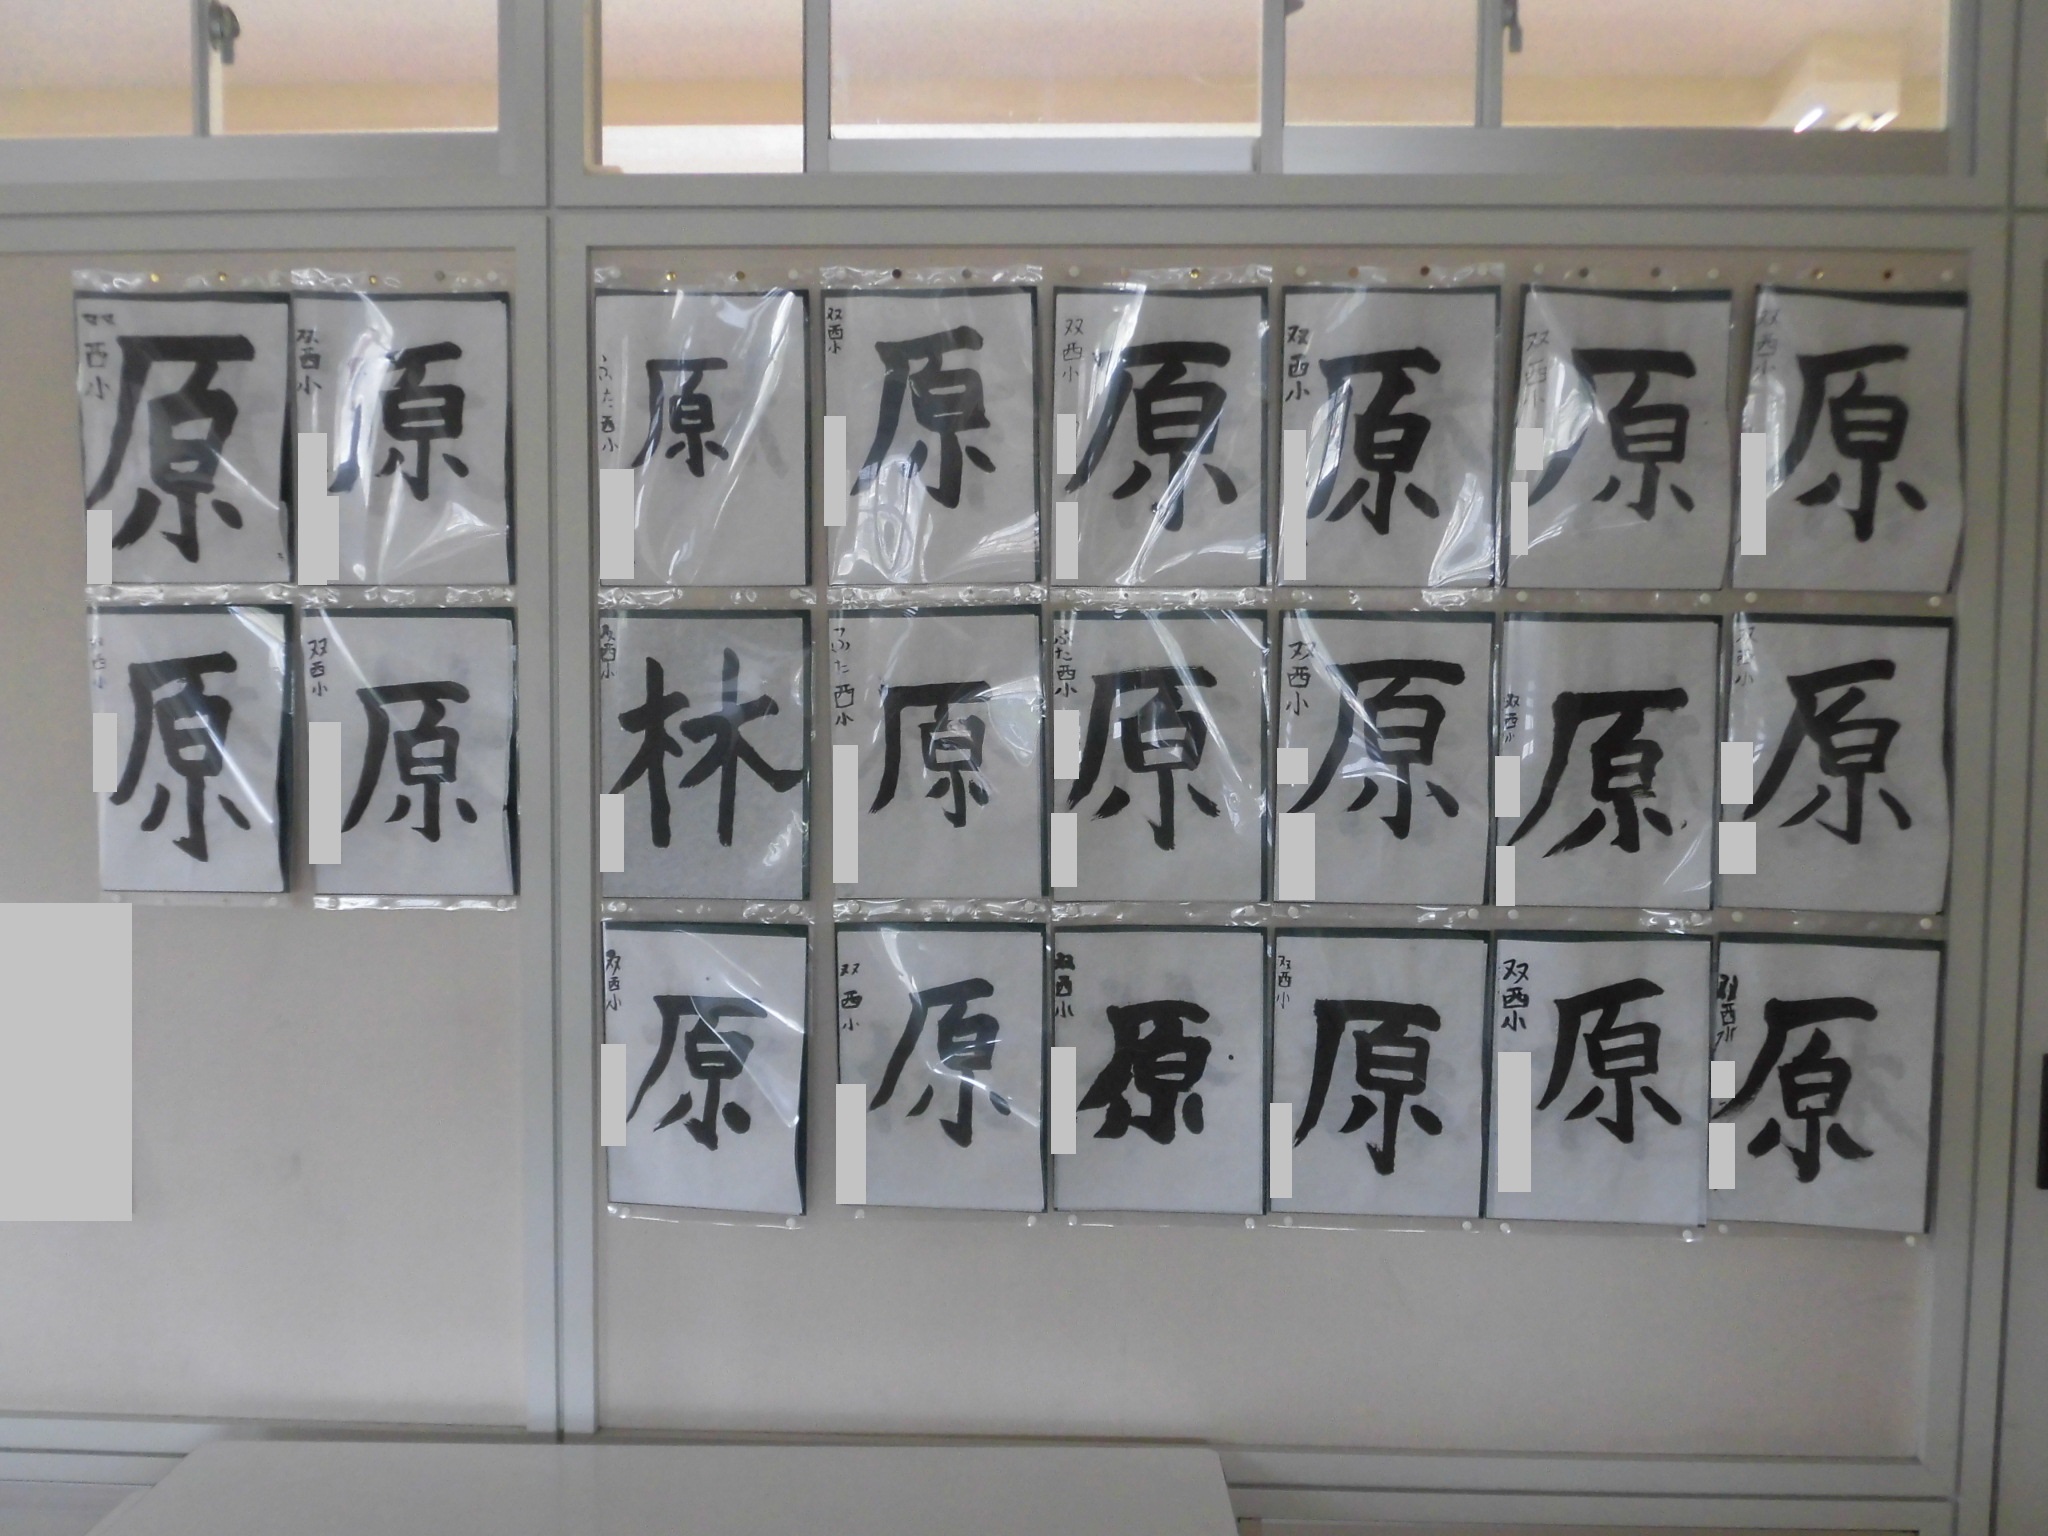 原
双西小
原
双西小
原
ふた西小
原
双西小
原
双西小
原
双西小
原
双西小
原
双西小
原
西小
原
双西小
林
双西小
原
ふた西小
原
ふた西小
原
双西小
原
双西小
原
双西小
原
双西小
原
双西小
原
双西小
原
双西小
原
双西小
原
西小